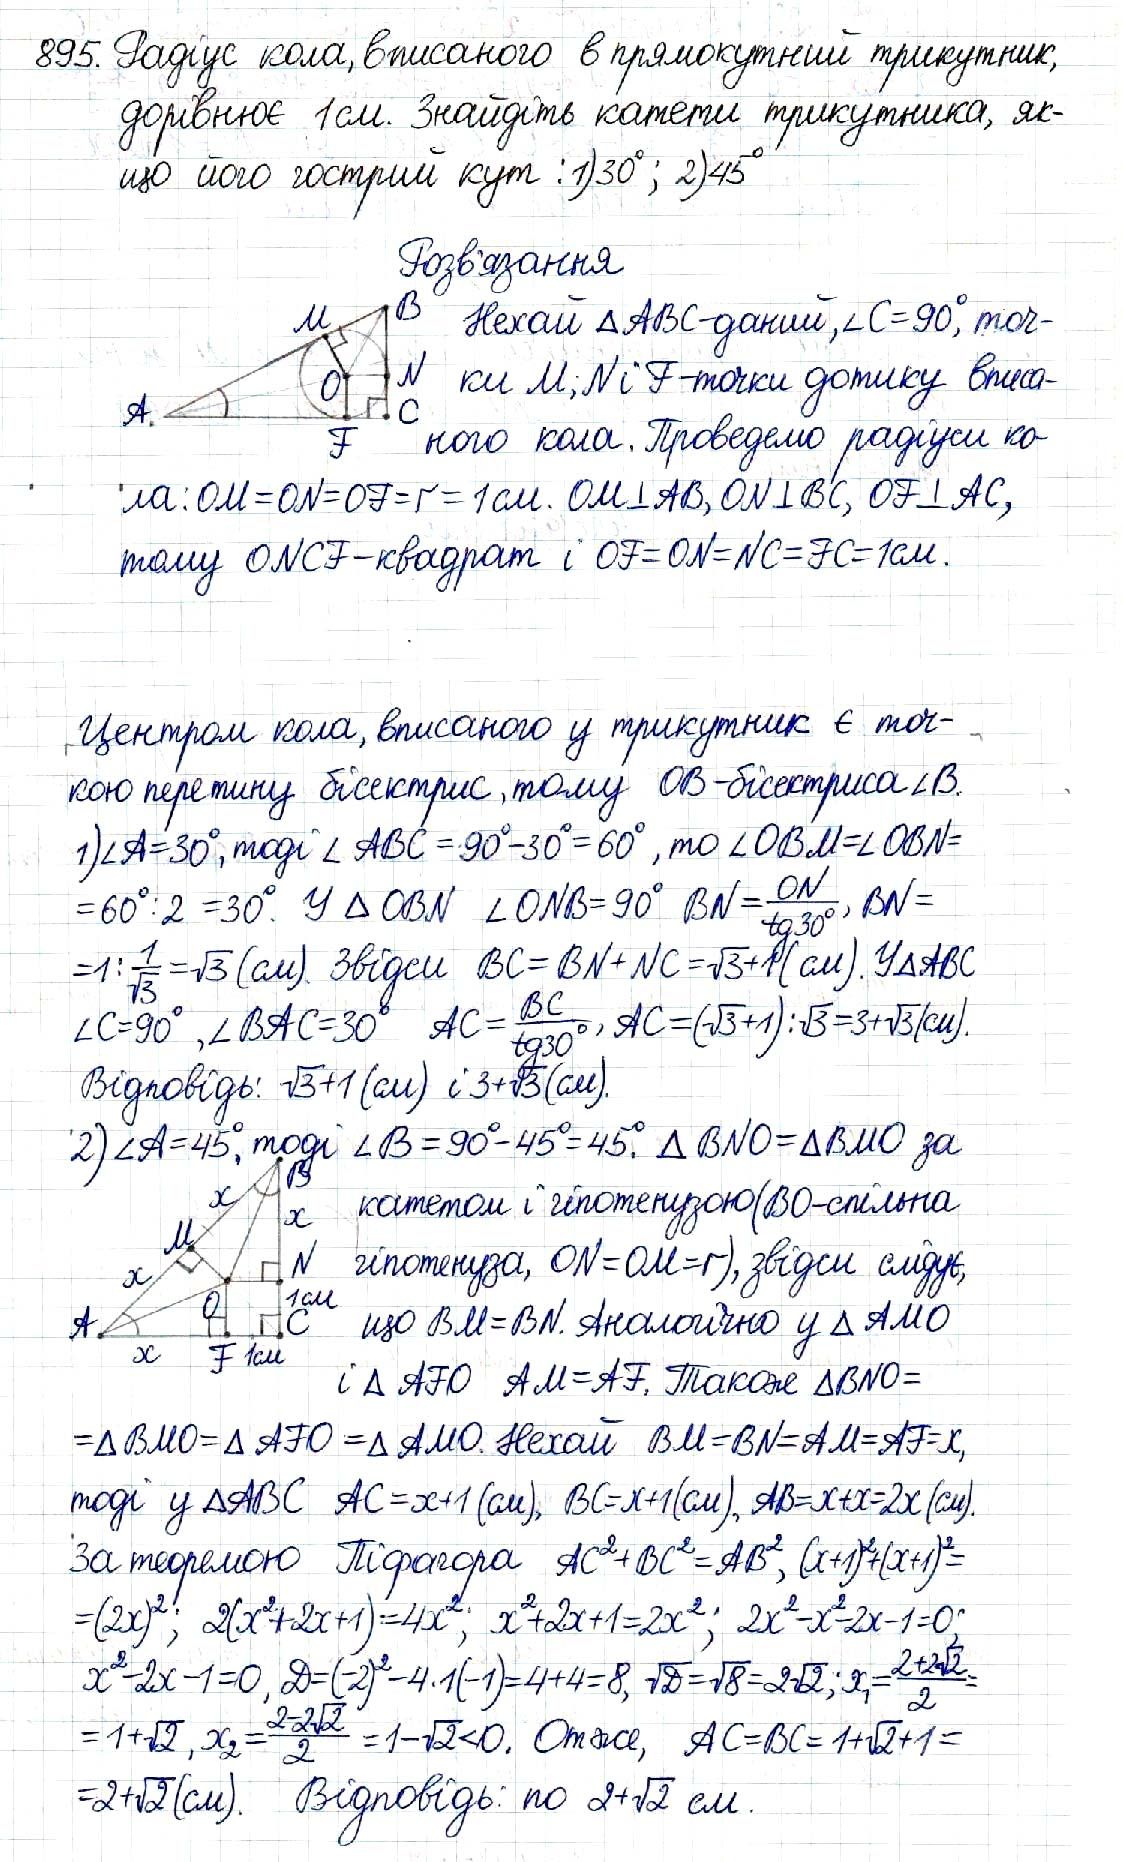 895. Радіус кола, вписаного в прямокутний трикутник,
дорівнює 1 см. Знайдіть катети трикутника, як-
що його гострий кут : 1) 30°; 2) 45°
Розв'язання
Нехай △ABC-даний, ∠C=90°, точ-
ки M; N і F-точки дотику вписа-
ного кола. Проведемо радіуси ко-
ла: OM=ON=OF=r=1см. OM⊥AB, ON⊥BC, OF⊥AC,
тому ONCF-квадрат і OF=ON=NC=FC=1см.
M B
O N
A C
F
Центром кола, вписаного у трикутник є точ-
кою перетину бісектрис, тому OB-бісектриса ∠B.
1) ∠A=30°, тоді ∠ABC=90°-30°=60°, то ∠OBM=∠OBN=
=60°:2=30°. У △OBN ∠ONB=90° BN=ON/tg30°, BN=
=1:1/√3=√3 (см). Звідси BC=BN+NC=√3+1 (см). У △ABC
∠C=90°, ∠BAC=30° AC=BC/tg30°, AC=(√3+1):√3=3+√3(см).
Відповідь: √3+1 (см) і 3+√3(см).
2) ∠A=45°, тоді ∠B=90°-45°=45°. △BNO=△BMO за
катетом і гіпотенузою (BO-спільна
гіпотенуза, ON=OM=r), звідси слідує,
що BM=BN. Аналогічно у △AMO
і △AFO AM=AF. Також △BNO=
B
x x
M N
x 1см
A O C
x F 1см
=△BMO=△AFO=△AMO. Нехай BM=BN=AM=AF=x,
тоді у △ABC AC=x+1 (см), BC=x+1(см), AB=x+x=2x(см).
За теоремою Піфагора AC²+BC²=AB², (x+1)²+(x+1)²=
=(2x)²; 2(x²+2x+1)=4x²; x²+2x+1=2x²; 2x²-x²-2x-1=0;
x²-2x-1=0, D=(-2)²-4·1(-1)=4+4=8, √D=√8=2√2; x₁=2+2√2/2=
=1+√2, x₂=2-2√2/2=1-√2<0. Отже, AC=BC=1+√2+1=
=2+√2(см). Відповідь: по 2+√2 см.